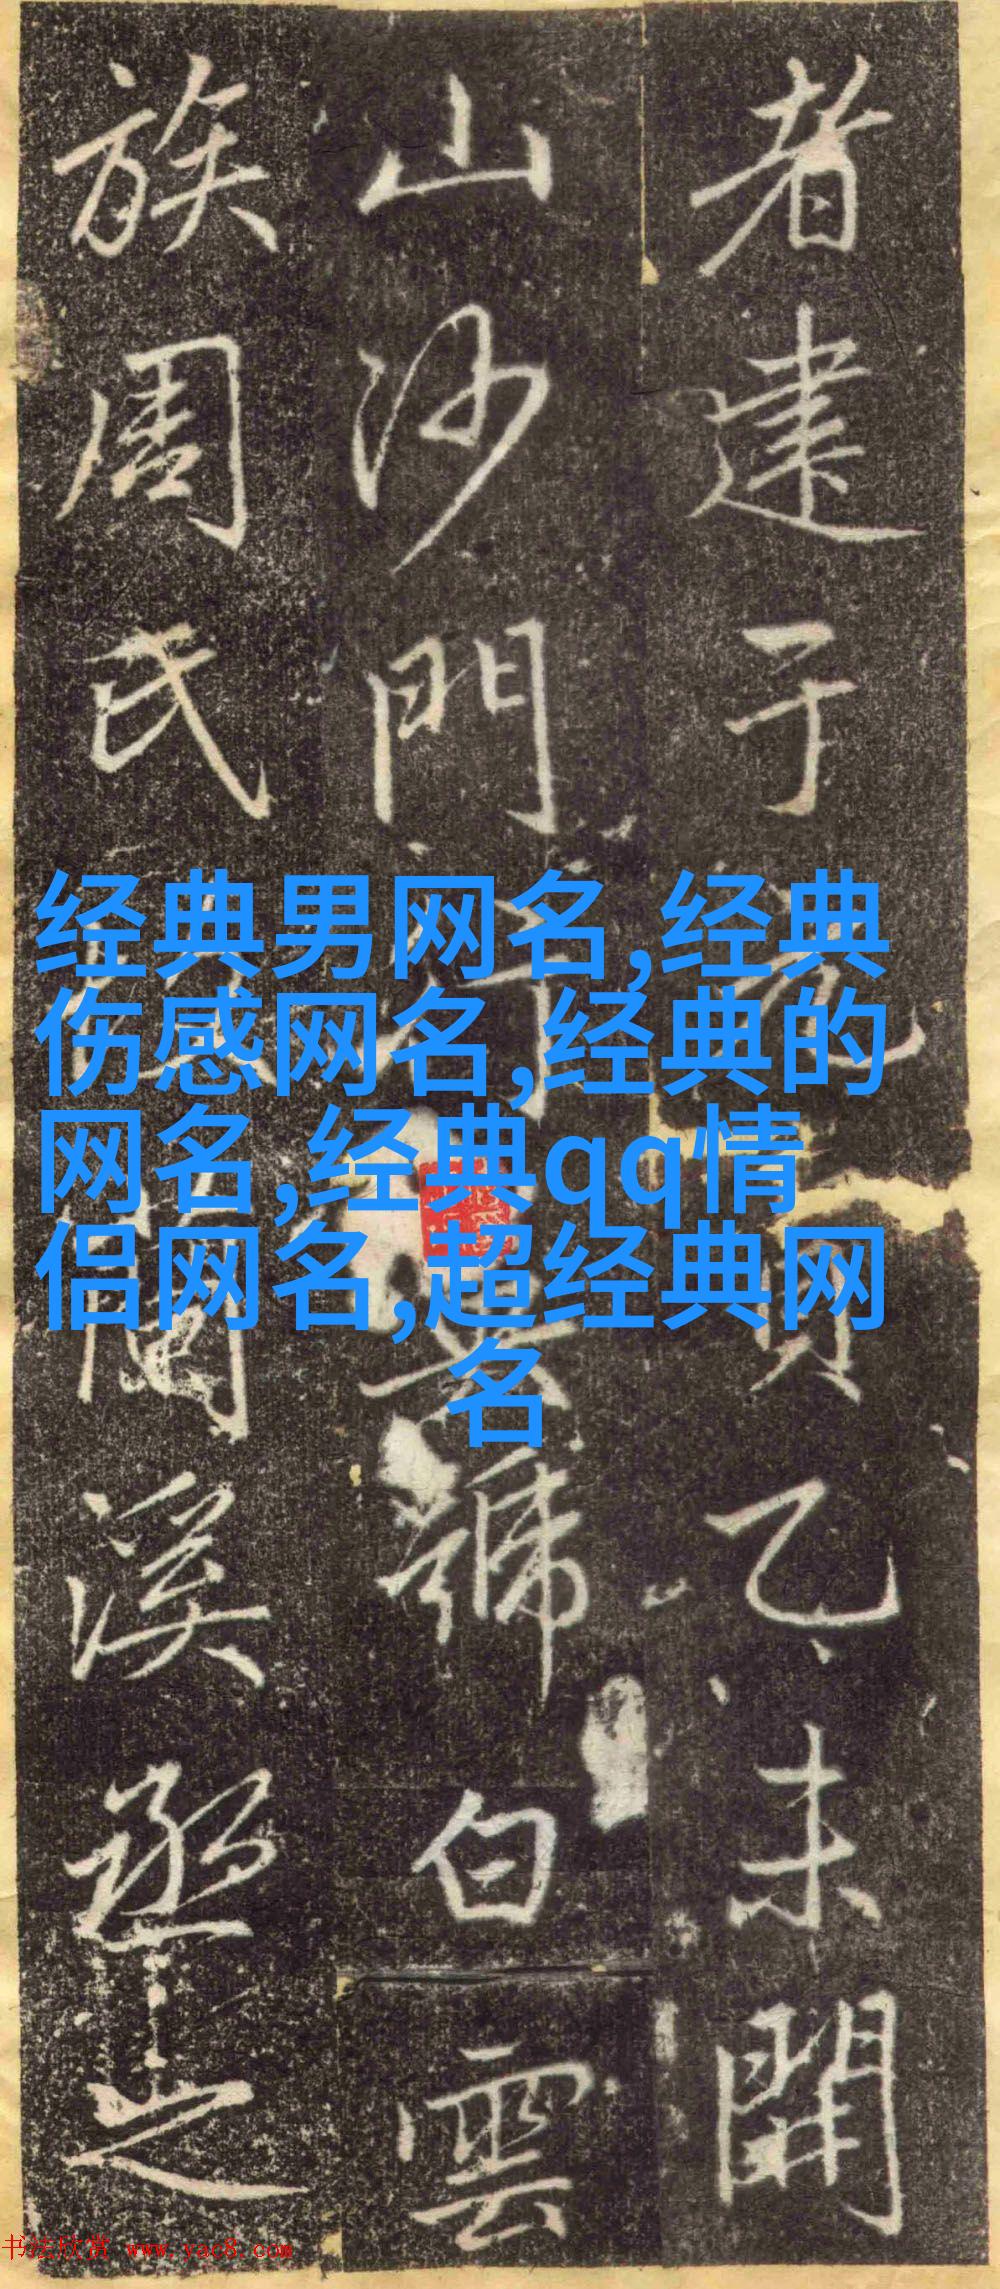 者建于乙未開
山沙門號白雲
族周氏溪丞之
经典男网名,经典
伤感网名,经典的
网名,经典qq情
侣网名,超经典网
名
书法欣赏 www.yac8.com